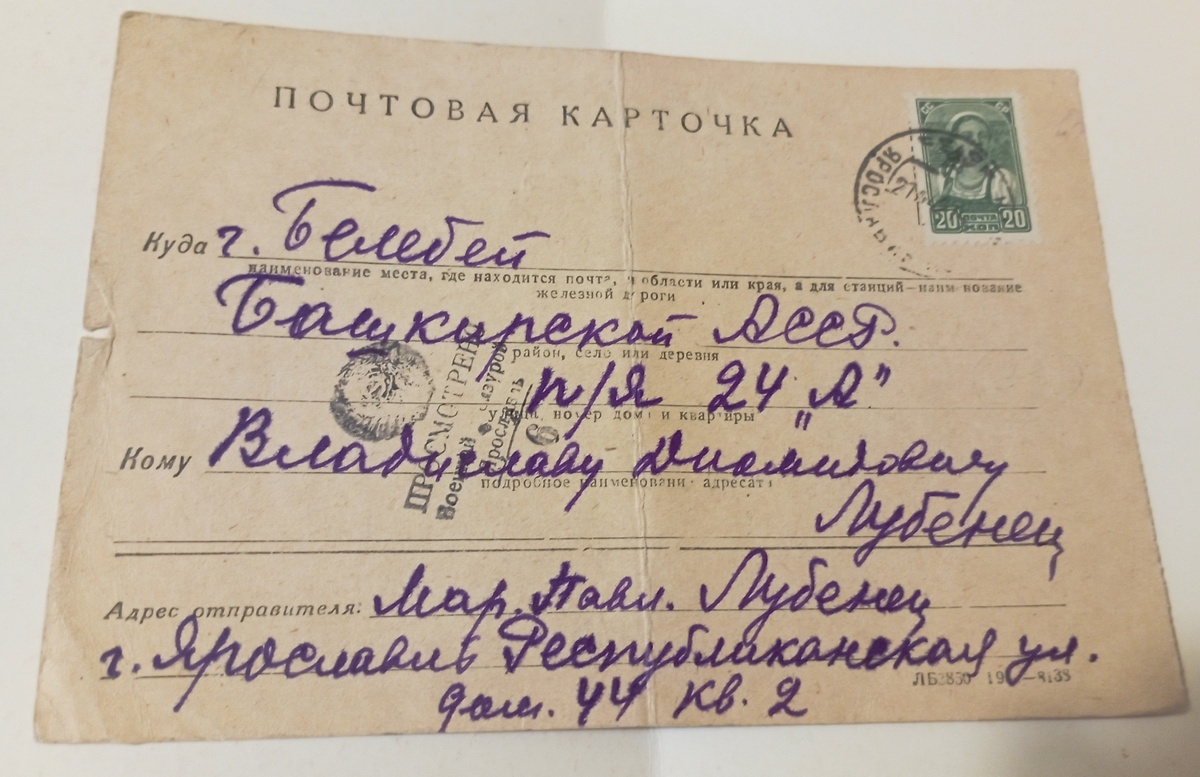 ПОЧТОВАЯ КАРТОЧКА
СС СР
20 ПОЧТА КОП 20
ЯРОСЛАВЛЬ
Куда г. Белебей
наименование места, где находится почта, и области или края, а для станций—наименование
железной дороги
Башкирской АССР.
район, село или деревня
п/я 24 "А"
улица, номер дома и квартиры
Кому Владиславу Диомидовичу
подробное наименование адресата
Лубенец
ПРОСМОТРЕНО
Военной Цензурой
Ярославль
6
Адрес отправителя: Мар. Павл. Лубенец
г. Ярославль Республиканская ул.
дом. 44 кв. 2
ЛБ3850